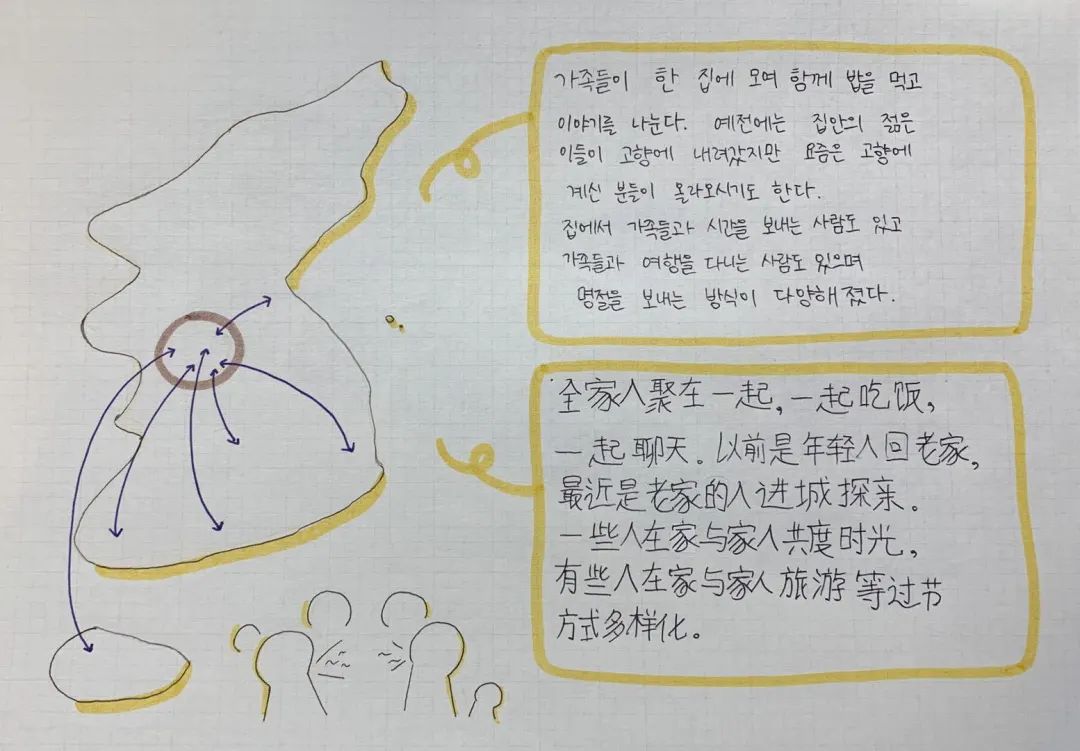 가족들이 한 집에 모여 함께 밥을 먹고
이야기를 나눈다. 예전에는 집안의 젊은
이들이 고향에 내려갔지만 요즘은 고향에
계신 분들이 올라오시기도 한다.
집에서 가족들과 시간을 보내는 사람도 있고
가족들과 여행을 다니는 사람도 있으며
명절을 보내는 방식이 다양해졌다.
全家人聚在一起,一起吃饭,
一起聊天。以前是年轻人回老家,
最近是老家的人进城探亲。
一些人在家与家人共度时光,
有些人在家与家人旅游等过节
方式多样化。